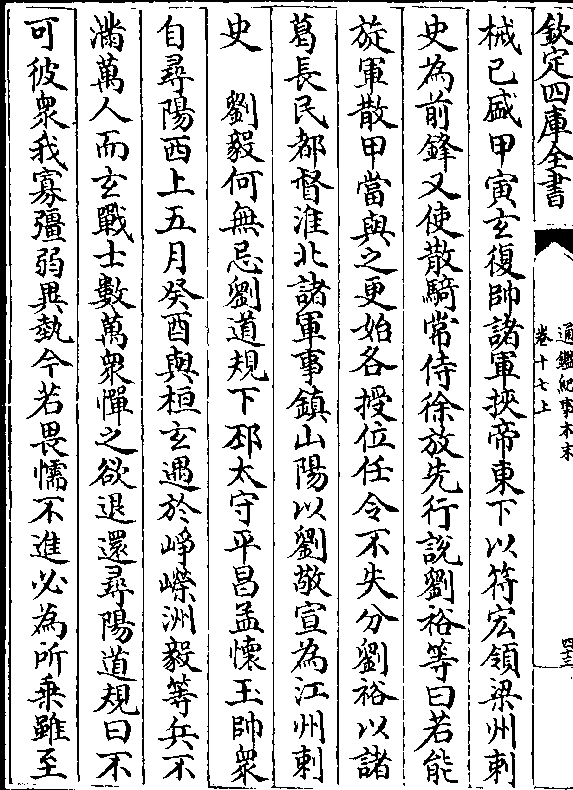 欽定四庫全書
通鑑紀事本末
卷十七上
四三
械已盛甲寅玄復帥諸軍挾帝東下以符宏領梁州刺
史為前鋒又使散騎常侍徐放先行說劉裕等曰若能
旋軍散甲當與之更始各授位任令不失分劉裕以諸
葛長民都督淮北諸軍事鎮山陽以劉敬宣為江州刺
史　劉毅何無忌劉道規下邳太守平昌孟懷玉帥衆
自尋陽西上五月癸酉與桓玄遇於崢嶸洲毅等兵不
滿萬人而玄戰士數萬衆憚之欲退還尋陽道規曰不
可彼衆我寡彊弱異勢今若畏懦不進必為所乗雖至